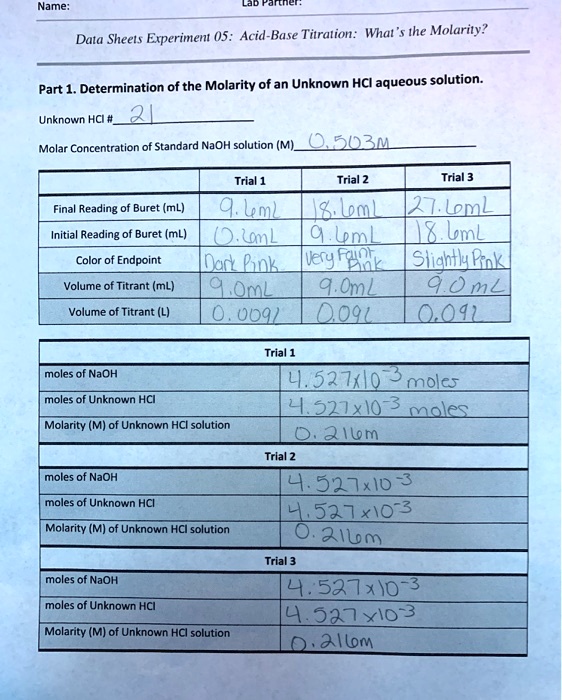 Name:
Lab Partner:
Data Sheets Experiment 05: Acid-Base Titration: What's the Molarity?
Part 1. Determination of the Molarity of an Unknown HCl aqueous solution.
Unknown HCl # 21
Molar Concentration of Standard NaOH solution (M) 0.503M
Trial 1 Trial 2 Trial 3
Final Reading of Buret (mL) 9.6mL 18.6mL 27.6mL
Initial Reading of Buret (mL) 0.6mL 9.6mL 18.6mL
Color of Endpoint Dark Pink Very Faint Pink Slightly Pink
Volume of Titrant (mL) 9.0mL 9.0mL 9.0mL
Volume of Titrant (L) 0.009L 0.09L 0.09L
Trial 1
moles of NaOH 4.527x10-3 moles
moles of Unknown HCl 4.527x10-3 moles
Molarity (M) of Unknown HCl solution 0.216m
Trial 2
moles of NaOH 4.527x10-3
moles of Unknown HCl 4.527x10-3
Molarity (M) of Unknown HCl solution 0.216m
Trial 3
moles of NaOH 4.527x10-3
moles of Unknown HCl 4.527x10-3
Molarity (M) of Unknown HCl solution 0.216m